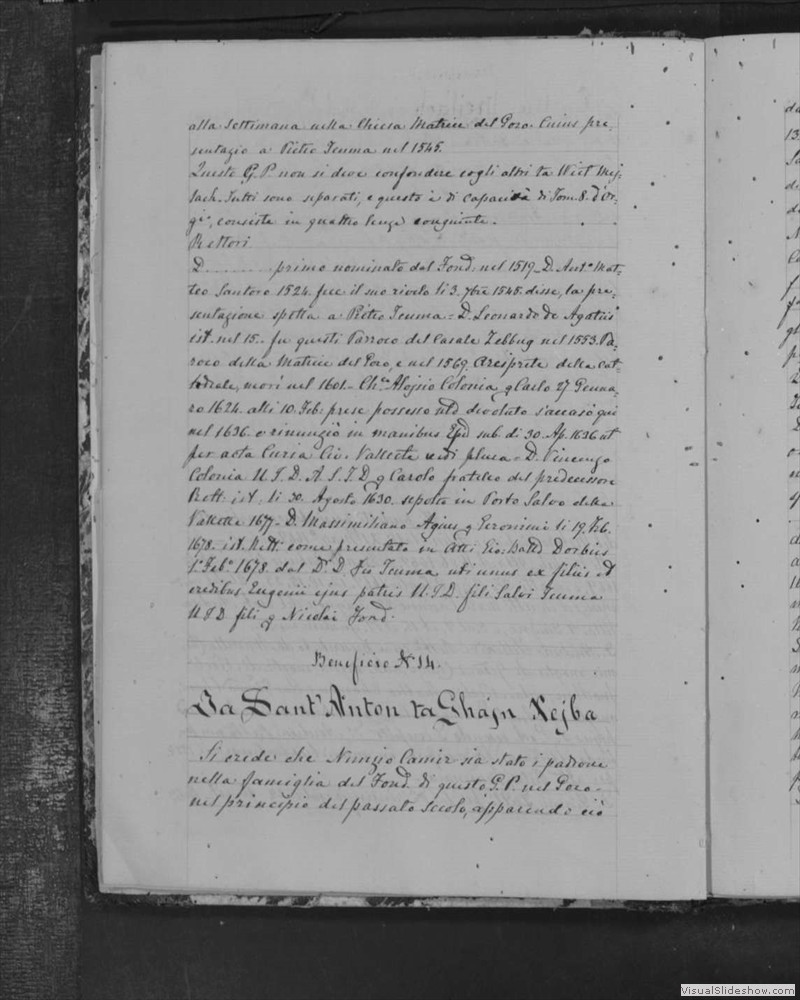 alla Settimana nella Chiesa Matrice del Gozo. Cuius pre-
sentazio a Pietro Tcuma nel 1545.
Questo G. P. non si deve confondere cogli altri ta Wiet Mej-
lach. Tutti sono separati, e questo è di capacità di Tom. 8. d'Or-
go, consiste in quattro lenze congiunte.
Rettori
D. .......... primo nominato dal Fond. nel 1519. D. Ant.o Mat-
teo Santoro 1524. fece il suo rivelo li 3. 7bre 1545. disse, la pre-
sentazione spetta a Pietro Tcuma = D. Leonardo de Agatiis
ist. nel 15.. fu questi Parroco del Casale Zebbug nel 1553. Pa-
roco della Matrice del Gozo, e nel 1569. Arciprete della Cat-
tedrale, morì nel 1601. Ch.co Aloysio Colonia q Carlo 27 Genna-
ro 1624. alli 10. Feb. prese possesso s'accasò qui
nel 1636. o rinunziò in manibus Epi sub. di 30. Ap. 1636 ut
per acta Curia Civ. Vallette D. Vincenzo
Colonia U. J. D. A. S. T. D. q Carolo fratello del predecessore
Rett. ist. li 30. Agosto 1630. sepolto in Porto Salvo della
Vallette 1677. D. Massimiliano Agius q Geronimi li 19. Feb.
1678. ist. Rett. come presentato in Atti Gio. Batt.a Dorbies
1.o Feb.o 1678. dal D.r D. Tcuma uti unus ex filiis et
eredibus Eugenii ejus patris U. J. D. fili Salvi Tcuma
U J D fili q Nicolai Fond.
Beneficio N. 14.
Ta Sant' Anton ta Ghajn Xejba
Si crede che Nunzio Camir sia stato i padrone
nella famiglia del Fond. di questo G. P. nel Gozo
nel principio del passato Secolo, apparendo ciò
VisualSlideshow.com